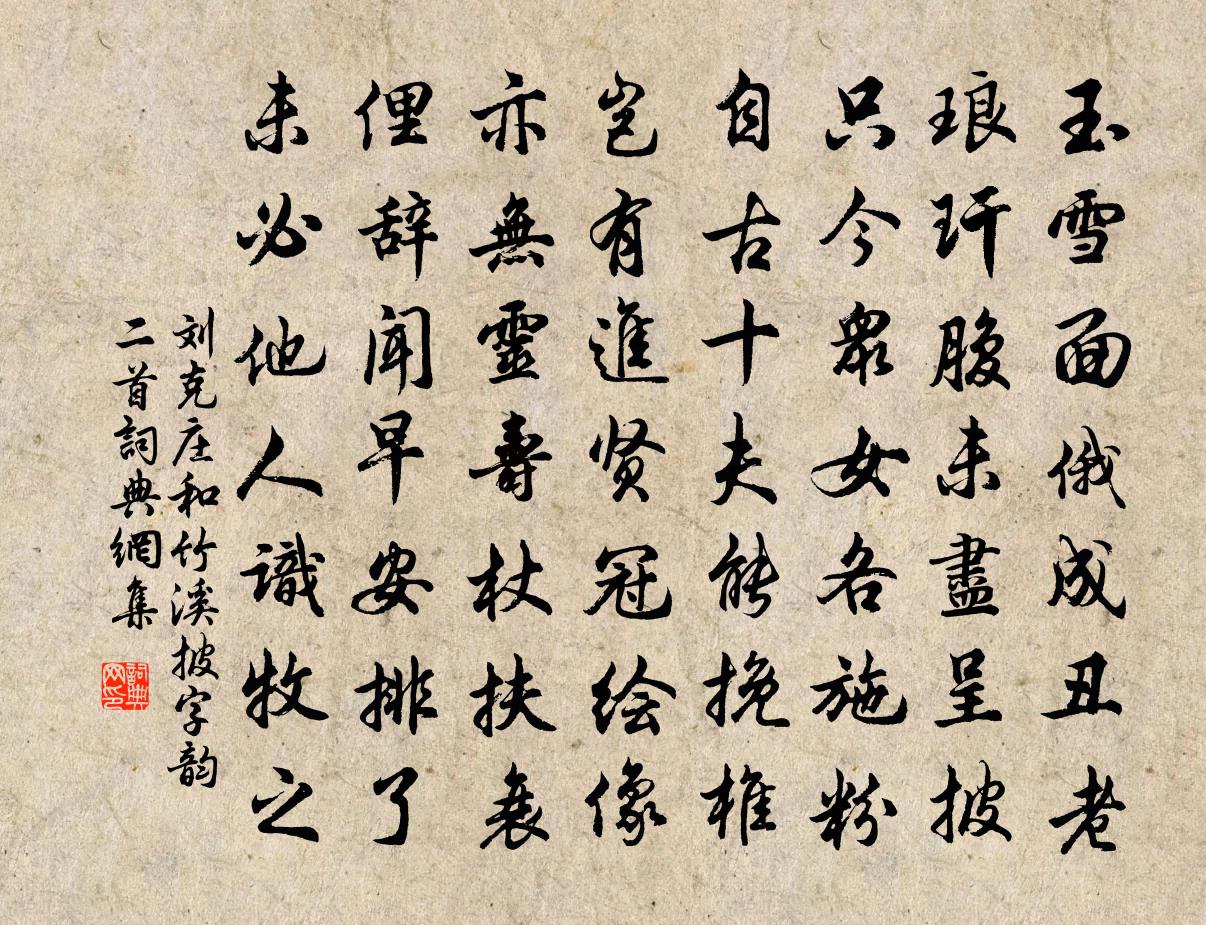 玉雪面俄成丑老
琅玕腹未盡呈披
只今衆女各施粉
自古十夫能挽椎
岂有進贤冠绘像
亦無靈壽杖扶衰
俚辞聞早安排了
未必他人識牧之
刘克庄和竹溪披字韵
二首詞典網集
詞典网印